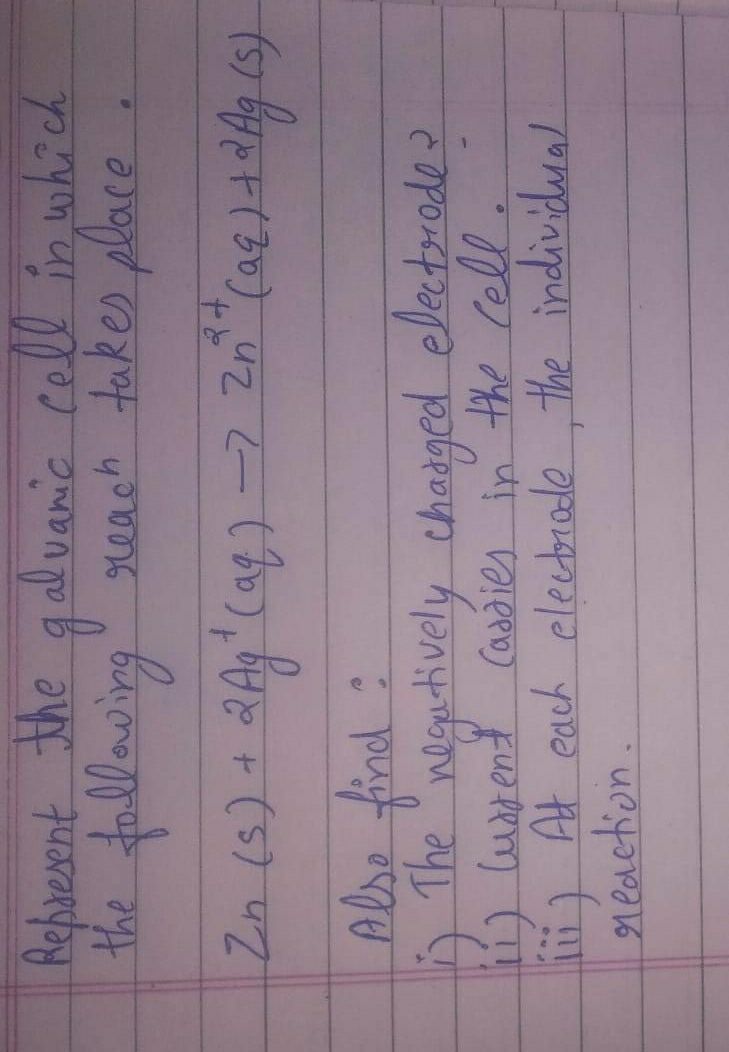 Represent the galvanic cell in which
the following reach takes place.
Zn (s) + 2Ag⁺ (aq) → Zn²⁺ (aq) + 2Ag (s)
Also find :
i) The negatively charged electrode?
ii) Current carries in the cell.
iii) At each electrode, the individual
reaction.